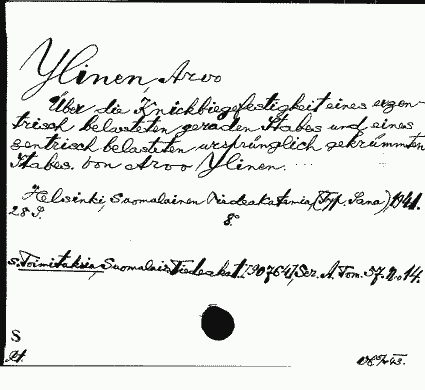 Ylinen, Arvo
Über die Knickbiegefestigkeit eines exzen-
trisch belasteten geraden Stabes und eines
zentrisch belasteten, ursprünglich gekrümmten
Stabes. von Arvo Ylinen.
Helsinki, Suomalainen Tiedeakatemia, (Typ. Sana), 1941.
28 S. 8°
s. Toimituksia, Suomalais. Tiedeakat. Ser. A. Tom. 57. N:o 14.
S